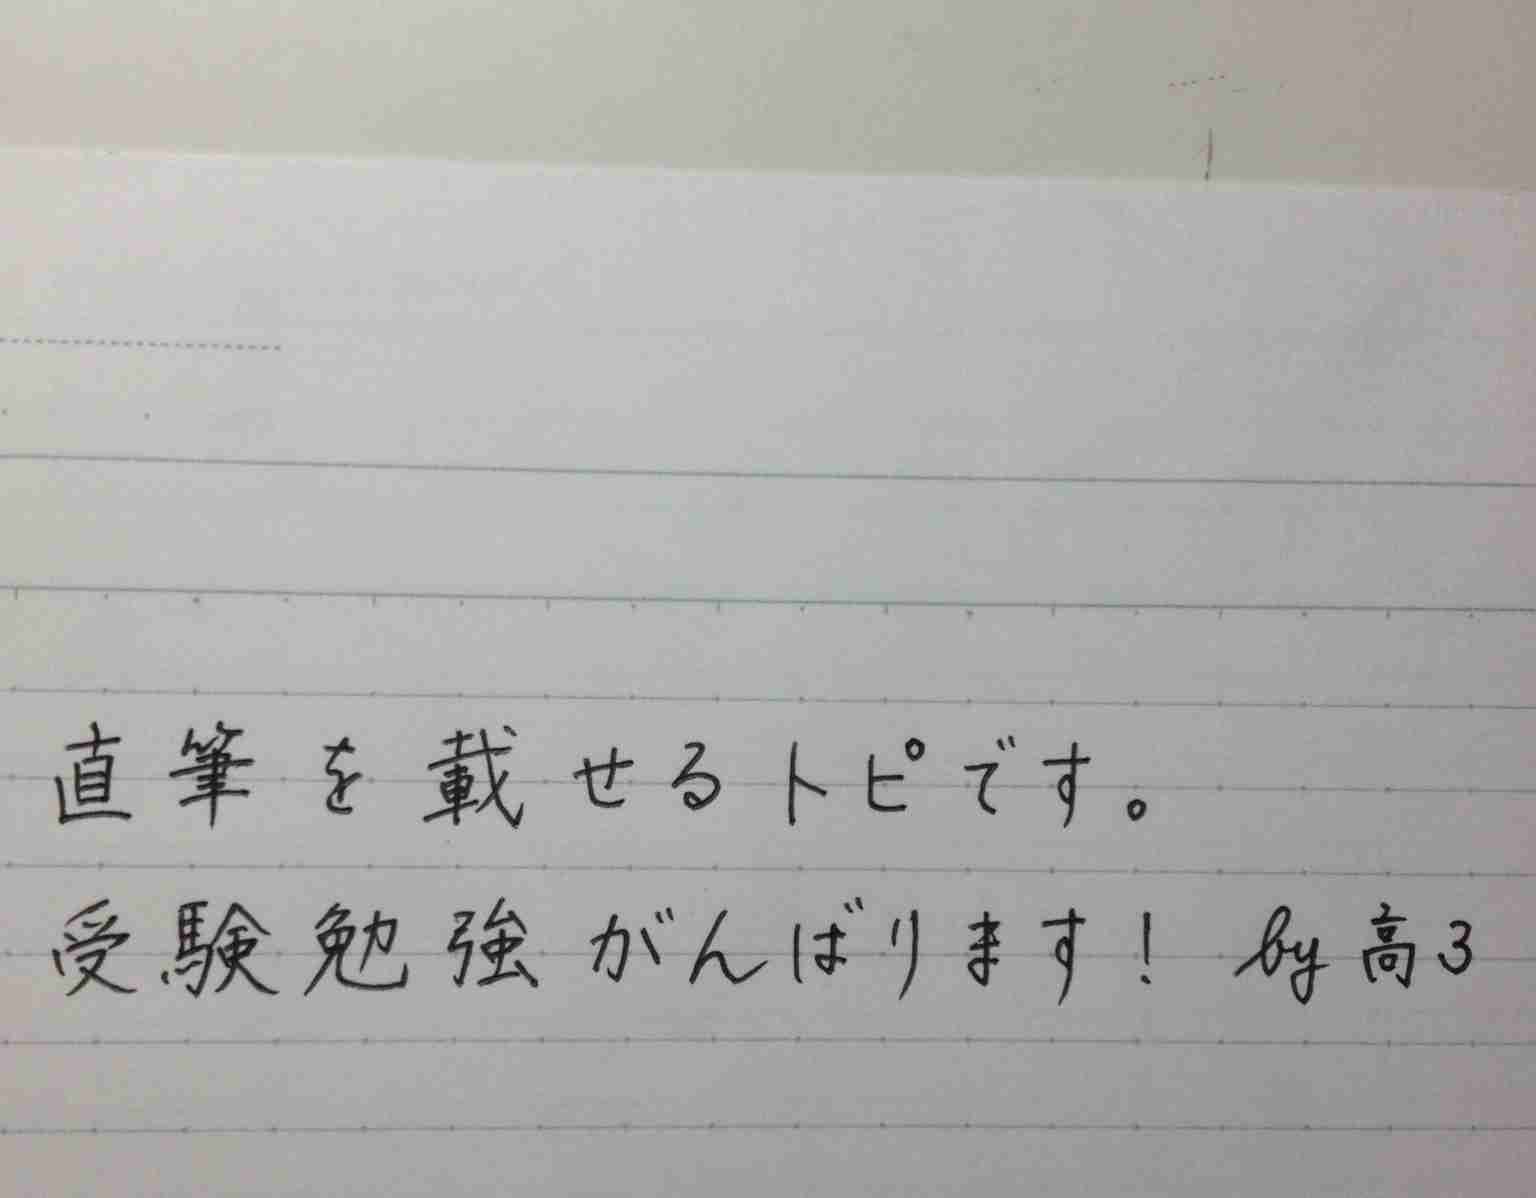 直筆を載せるトピです。
受験勉強がんばります! by高3